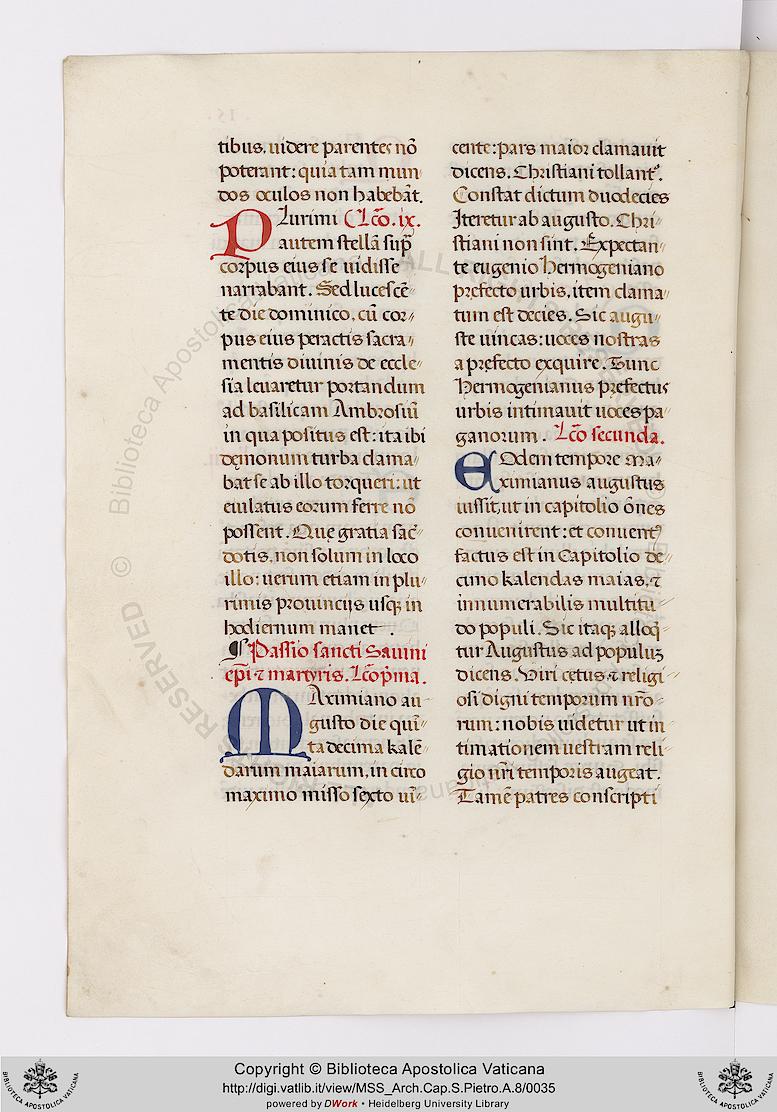 tibus. uidere parentes nõ
poterant: quia tam mun
dos oculos non habebãt.
PLurimi Lcõ. ix.
autem stellã sup̃
corpus eius se uidisse
narrabant. Sed lucescẽ
te die dominico. cũ cor
pus eius peractis sacra
mentis diuinis de eccle
sia leuaretur portandum
ad basilicam Ambrosiũ
in qua positus est: ita ibi
dęmonum turba clama
bat se ab illo torqueri: ut
eiulatus eorum ferre nõ
possent. Quę gratia sac̃
dotis. non solum in loco
illo: uerum etiam in plu
rimis prouincijs usq; in
hodiernum manet.
¶ Passio sancti Sauini
ep̃i ⁊ martyris. Lcõ p̃ma.
MAximiano au
gusto die quĩ
ta decima kalẽ
darum maiarum, in circo
maximo misso sexto uĩ
cente: pars maior clamauit
dicens. Christiani tollant᷑.
Constat dictum duodecies
Iteretur ab augusto. Chri
stiani non sint. Expectan
te eugenio hermogeniano
prefecto urbis. item clama
tum est decies. Sic augu
ste uincas: uoces nostras
a prefecto exquire. Tunc
hermogenianus prefectus
urbis intimauit uoces pa
ganorum. Lcõ secunda.
EOdem tempore Ma
ximianus augustus
iussit, ut in capitolio õnes
conuenirent: et conuent᷑
factus est in Capitolio de
cimo kalendas maias. ⁊
innumerabilis multitu
do populi. Sic itaq; alloq̃
tur Augustus ad populuʒ
dicens. Viri cetus ⁊ religi
osi digni temporum nr̃o
rum: nobis uidetur ut in
timationem uestram reli
gio nr̃i temporis augeat.
Tamẽ patres conscripti
Copyright © Biblioteca Apostolica Vaticana
http://digi.vatlib.it/view/MSS_Arch.Cap.S.Pietro.A.8/0035
powered by DWork • Heidelberg University Library